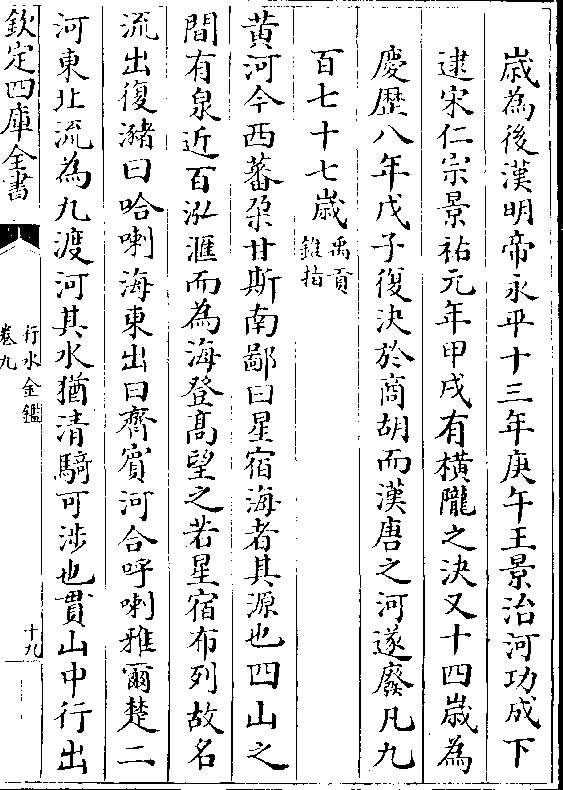 歳為後漢明帝永平十三年庚午王景治河功成下
逮宋仁宗景祐元年甲戌有横隴之決又十四歳為
慶歴八年戊子復決於商胡而漢唐之河遂廢凡九
百七十七歳禹貢錐指
黄河今西蕃朶甘斯南鄙曰星宿海者其源也四山之
間有泉近百泓滙而為海登髙望之若星宿布列故名
流出復瀦曰哈喇海東出曰齊賔河合呼喇雅爾楚二
河東北流為九渡河其水猶清騎可涉也貫山中行出
欽定四庫全書
行水金鑑
卷九
十九